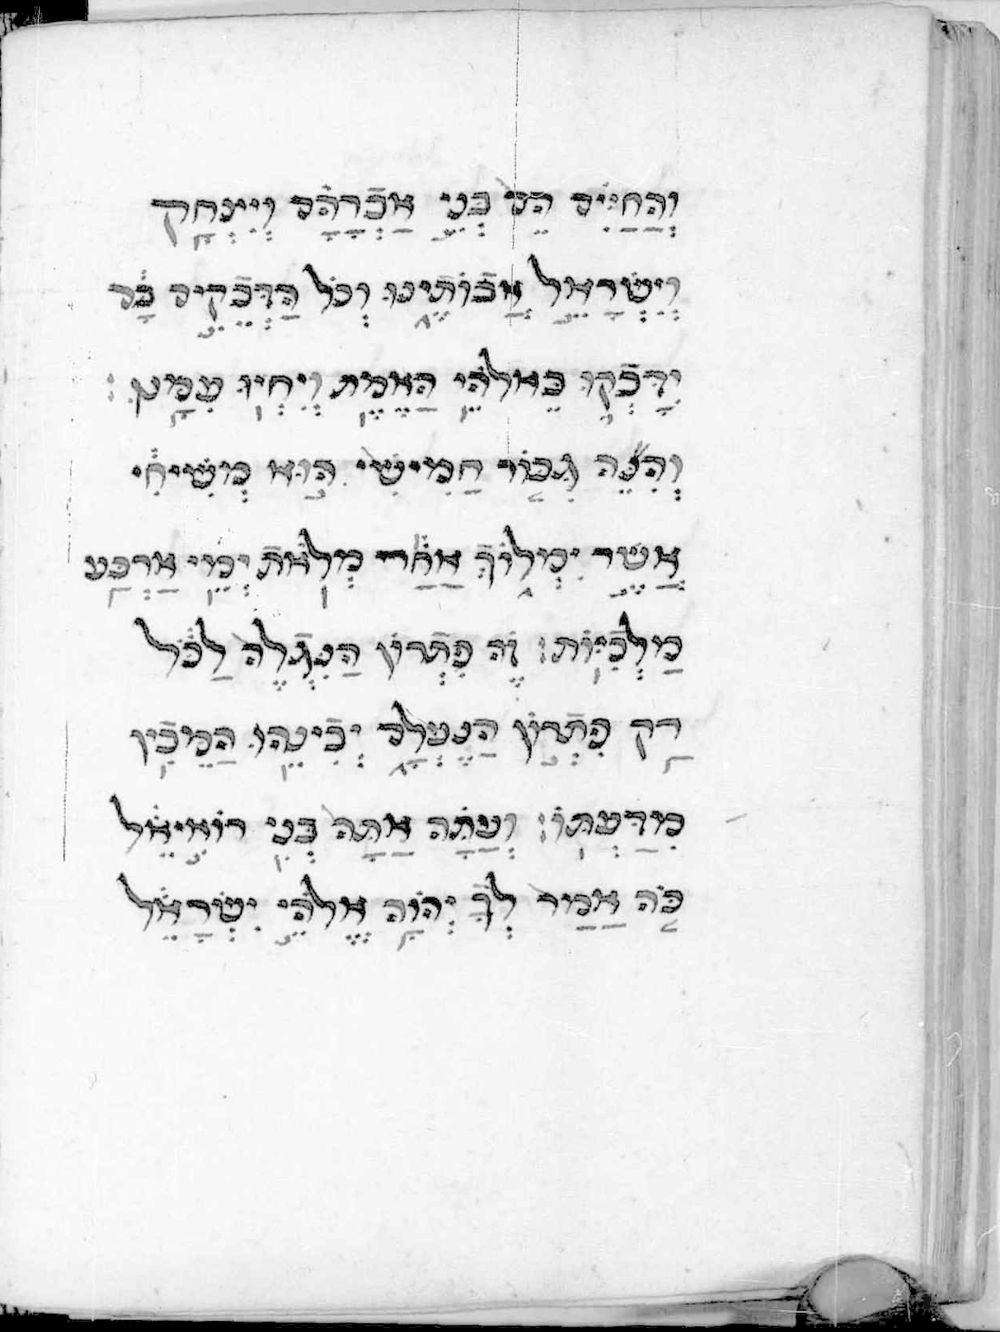 וְהַחַיִּים הֵם בְּנֵי אַבְרָהָם וְיִצְחָק
וְיִשְׂרָאֵל אֲבוֹתֵינוּ וְכֹל הַדְּבֵקִים בָּם
יִדָּבְקוּ בֵּאלֹהֵי הָאֱמֶת וְיִחְיוּ עִמָּם׃
וְהִנֵּה גִבּוֹר חַמִישִׁי הוּא מְשִׁיחִי
אֲשֶׁר יִמְלוֹךְ אַחַר מְלֹאת יְמֵי אַרְבַּע
מַלְכִיּוֹת׃ זֶה פִּתְרוֹן הַנִּגְלֶה לַכֹּל
רַק פִּתְרוֹן הַנֶּעְלָם יְבִינֵהוּ הַמֵּבִין
מִדַּעְתּוֹ׃ וְעַתָּה אַתָּה בְּנִי רוֹאִיאֵל
כֹּה אָמַר לְךָ יְהוָה אֱלֹהֵי יִשְׂרָאֵל